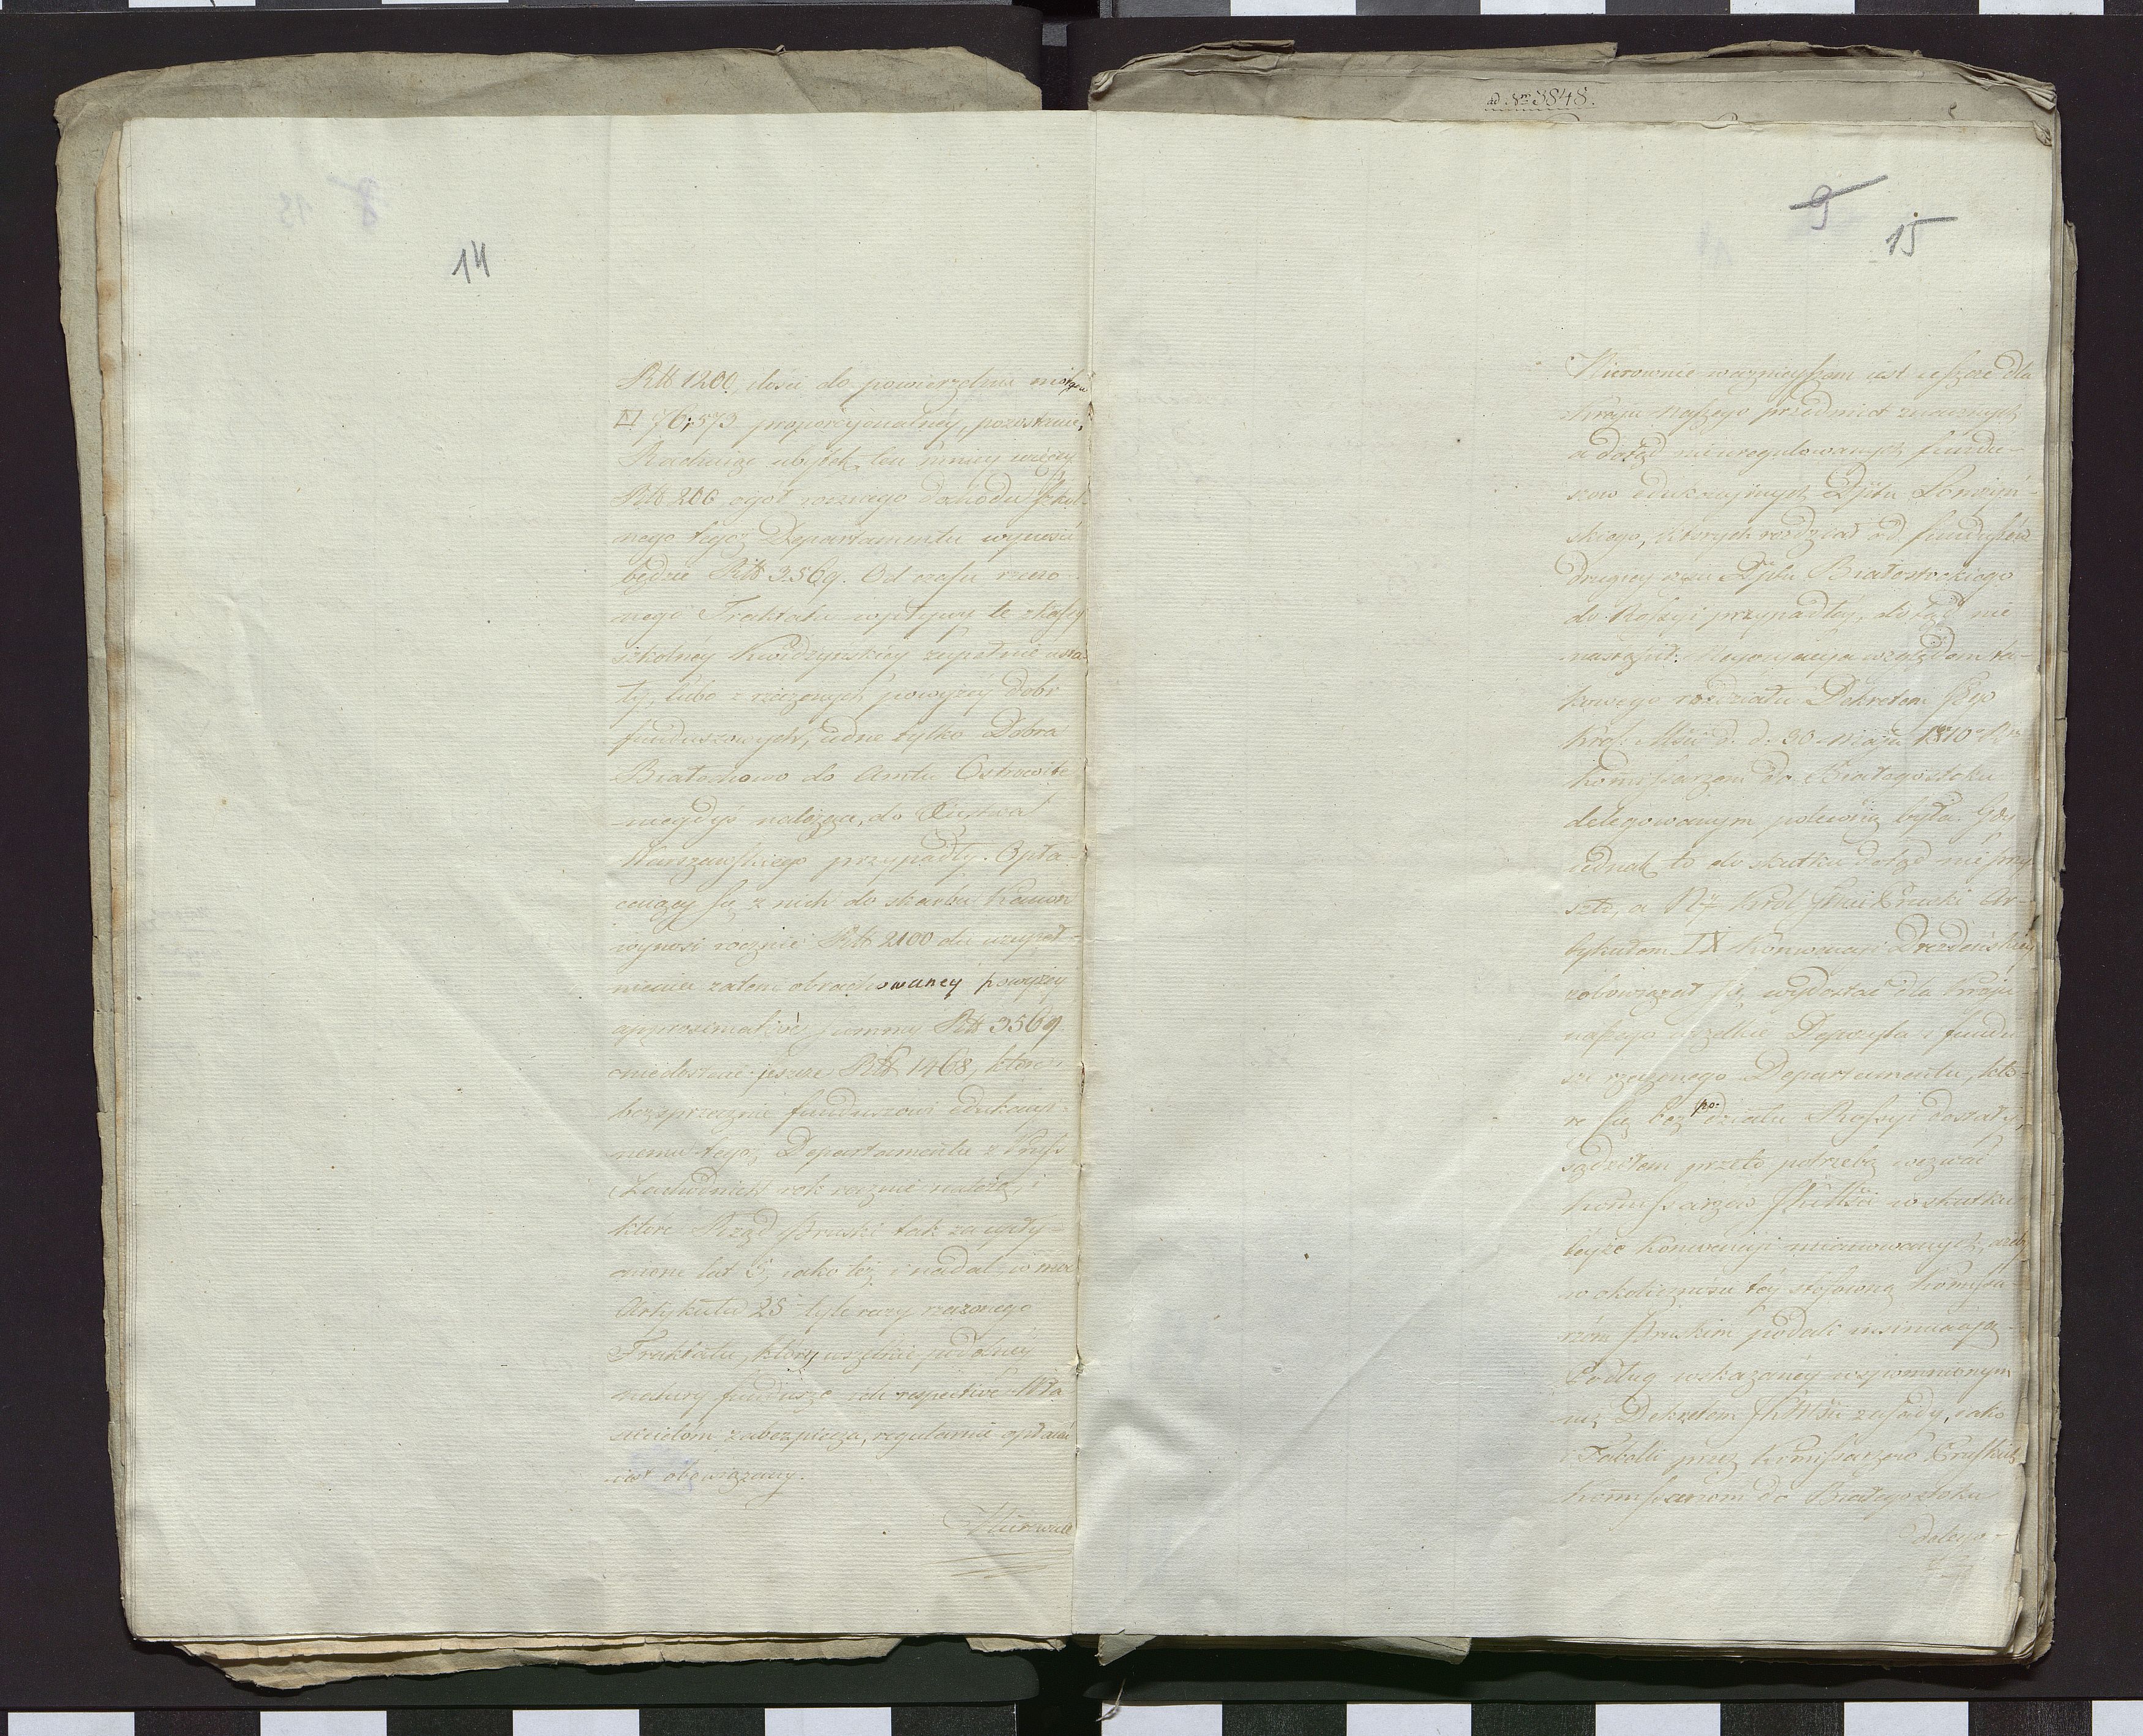 14
Rtt 1200, ilości do powierzchni morgów
□ 76,573 proporcyonalnéy, pozostanie,
Rachuiąc ubytek ten mniéy więcéy
Rtt 200 ogół rocznego dochodu szkol-
nego tegoż Departamentu wynosić
będzie Rtt 3569. Od czasu rzeczo-
nego Traktatu wpływy te z kassy
szkolnéy Kwidzyńskiéy zupełnie usta-
ły, lubo z rzeczonych powyżéy dóbr
funduszowych, iedne tylko Dobra
Białochowo do Amtu Ostrowite
niegdyś należące, do Xięstwa
Warszawskiego przypadły. Opła-
caiący się z nich do skarbu Kanon
wynosi rocznie Rtt 2100 do uzupeł-
nienia zatem obrachowaney powyżey
approximative summy Rtt 3569
niedostaie jeszcze Rtt 1468, które
bezsprzecznie funduszowi edukacyi-
nemu tegoż Departamentu z Pruss
Zachodnich rok rocznie należą, i
które Rząd Pruski tak za upły-
nione lat 5, iako też i nadal, w moc
Artykułu 25 tyle razy rzeczonego
Traktatu, który wszelkie podobnéy
natury fundusze ich respective Wła-
ścicielom zabezpiecza, regularnie opłacać
iest obowiązany.
Nierównie
ad Nrm 3848.
9
15
Nierównie ważnieyszem iest ieszcze dla
Kraju naszego przedmiot znacznych
a dotąd nieuregulowanych fundu-
szów edukacyinych Dptu Łomżyń-
skiego, których rozdział od funduszów
drugiey części Dptu Białostockiego
do Rossyi przypadłéy, dotąd nie
nastąpił. Negocyacya względem ta-
kowego rozdziału Dekretem Jego
Król. Mści d. d. 30 Maja 1810 Ru
Kommissarzom do Białegostoku
delegowanym poleconą była. Gdy
iednak to do skutku dotąd nie przy-
szło, a Nż Król Jmć Pruski Ar-
tykułem IX Konwencyi Drezdeńskiéy
zobowiązał się wydostać dla Kraju
naszego wszelkie Depozyta i fundu-
sze rzeczonego Departamentu, któ-
re się bez podziału Rossyi dostały,
sądziłem przeto potrzebą wezwać
Kommissarzów JKMści w skutku
téyże Konwencyi mianowanych, ażeby
w okoliczności téy stosowną Kommissa-
rzom Pruskim podali insinuacyą
Podług wskazanéy wspomnionym
już Dekretem JKMści zasady, iako
i Tabelli przez Kommissarzów Pruskich
Kommissarzom do Białegostoku
delego-